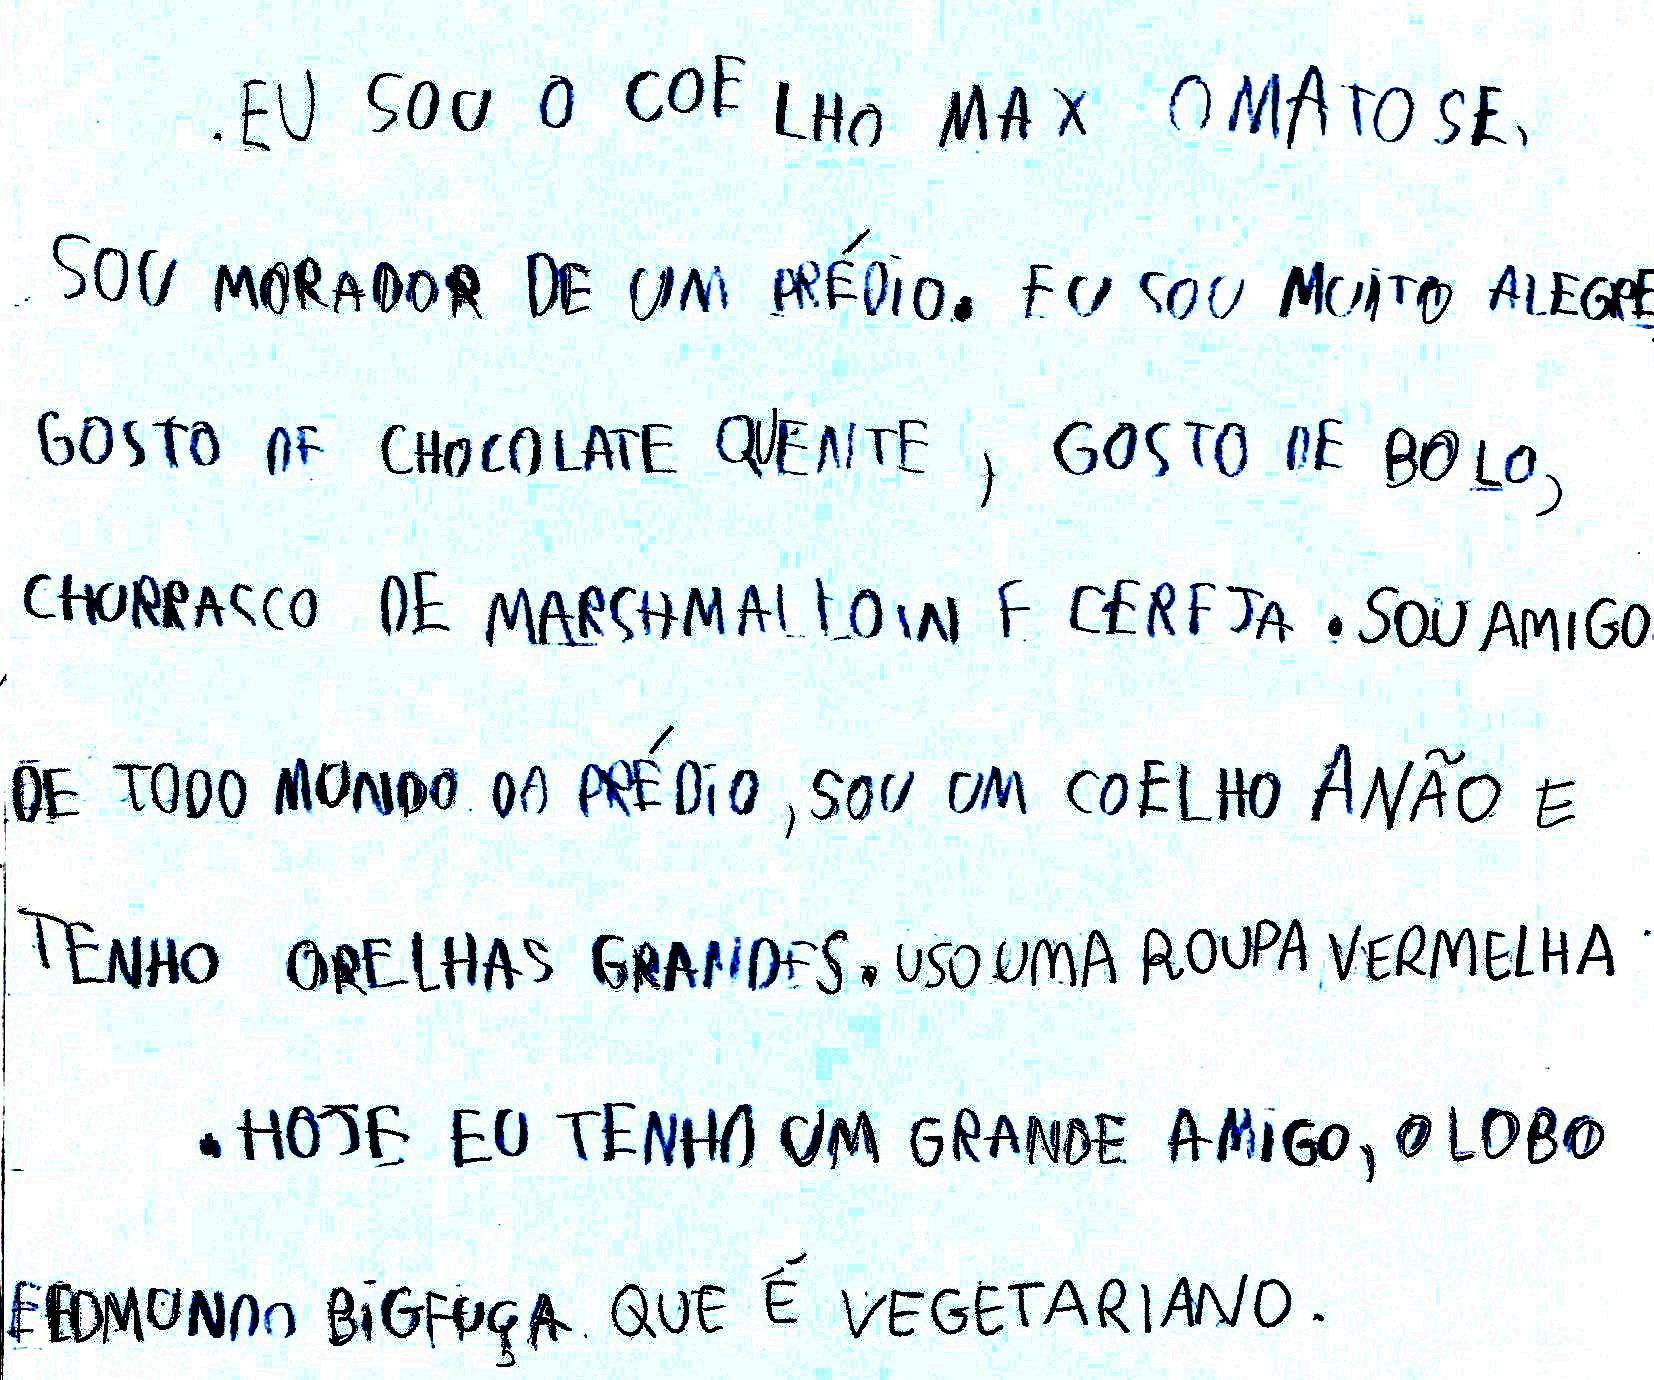 .EU SOU O COELHO MAX OMATOSE.
SOU MORADOR DE UM PRÉDIO. EU SOU MUITO ALEGRE
GOSTO DE CHOCOLATE QUENTE, GOSTO DE BOLO,
CHURRASCO DE MARSHMALLOW E CEREJA. SOU AMIGO
DE TODO MUNDO DO PRÉDIO, SOU UM COELHO ANÃO E
TENHO ORELHAS GRANDES. USO UMA ROUPA VERMELHA
.HOJE EU TENHO UM GRANDE AMIGO, O LOBO
EDMUNDO BIGFUÇA QUE É VEGETARIANO.